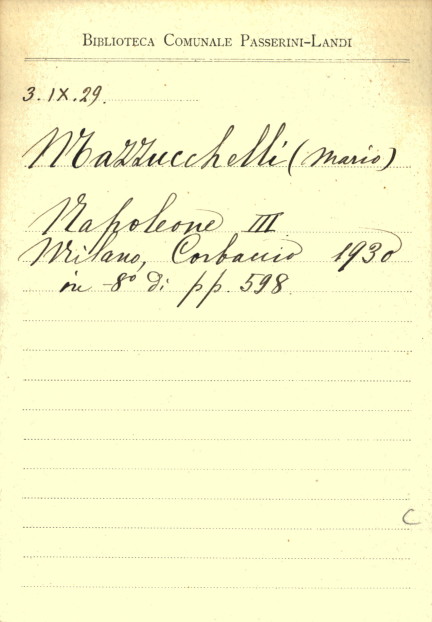 BIBLIOTECA COMUNALE PASSERINI-LANDI
3.IX.29.
Mazzucchelli (Mario)
Napoleone III
Milano, Corbaccio 1930
in -8° di pp. 598.
C